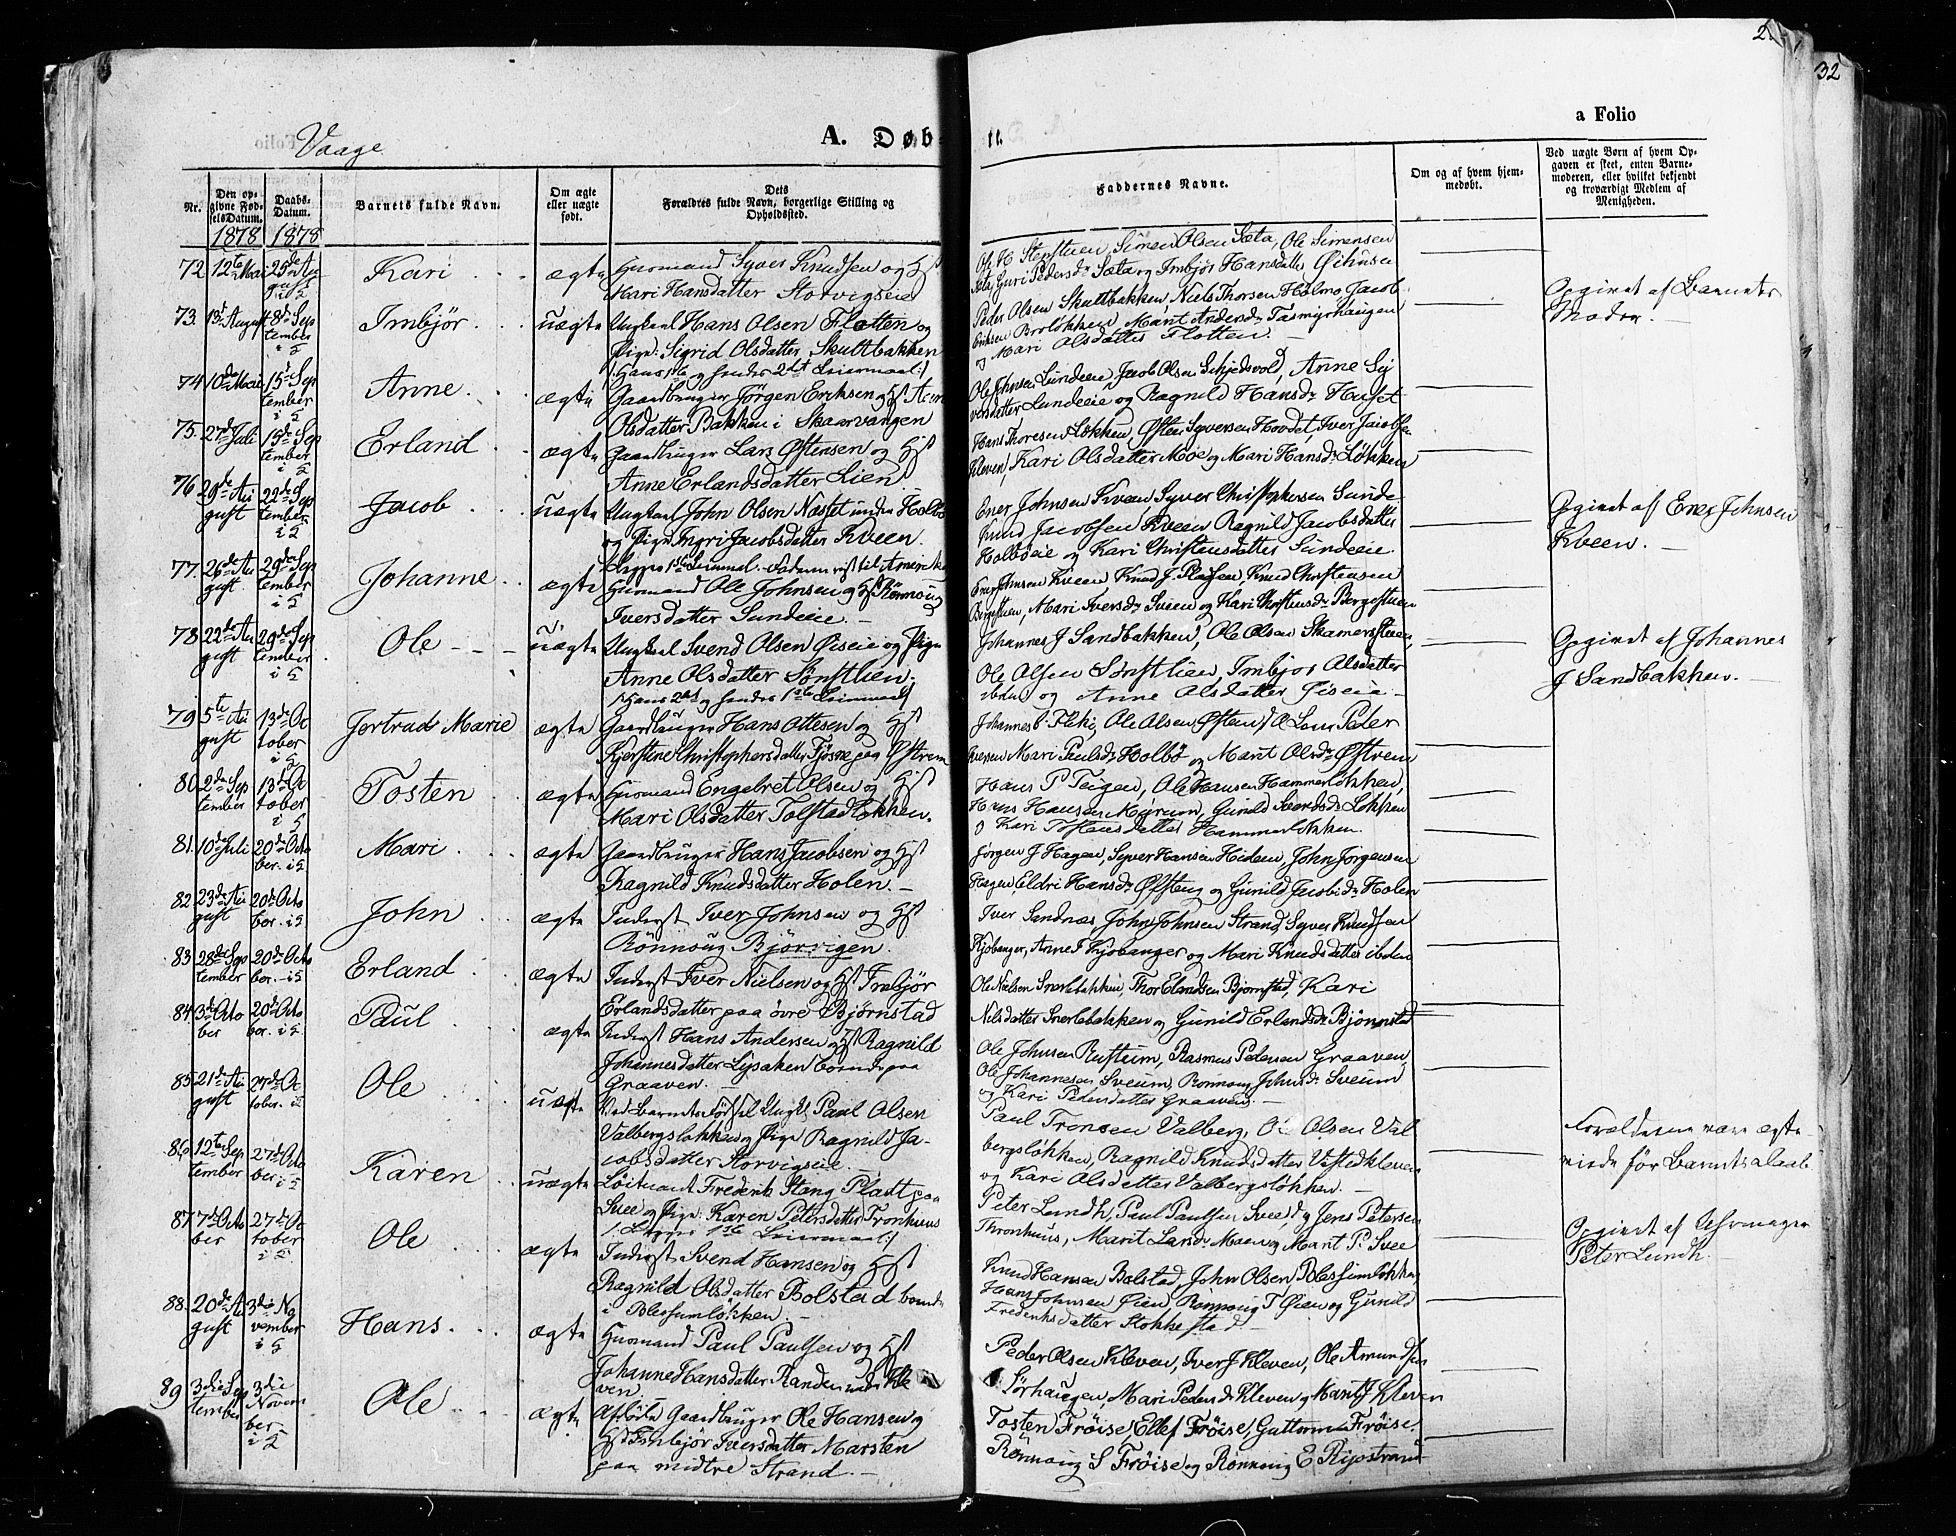 2
32
a Folio
Vaage
A. Døb-
Nr.
Den op-
givne Fød-
selsDatum.
1878
Daabs-
Datum.
1878
Barnets fulde Navn.
Om ægte
eller uægte
født.
Dets
Forældres fulde Navn, borgerlige Stilling og
Opholdssted.
Faddernes Navne.
Om og af hvem hjem-
medøbt.
Ved uægte Børn af hvem Op-
gaven er skeet, enten Barne-
moderen, eller hvilket bekjendt
og troværdigt Medlem af
Menigheden.
72 12te Mai 25de Au
gust
Kari
ægte
Huusmand Syver Knudsen og Hst
Mari Hansdatter Storvigseie
Ole H Stensten, Simen Olsen Sæta, Ole Simensen
Sæta, Guri Pedersdr Sæta og Imbjør Hansdatter
73. 13de August 8de Sep
tember
Imbjør
uægte
Ungkarl Hans Olsen Flotten og
Pige Sigrid Olsdatter Skultbakken
Hans 1ste og hendes 2det Leiermaal
Peder Olsen Skultbakken, Niels Thorsen Holmo Jacob
Eriksen Broløkken Marit Andersdr Tasmyrhaugen
og Mari Olsdatter Flotten.
Opgivet af Barnets
Moder.
74 10de Mai 15de Sep
tember
Anne
ægte
Gaardbruger Jørgen Eriksen og Hst Anne
Olsdatter Bakken i Skaarvangen
Ole Johnsen Lundeeie, Jacob Olsen Skjedsvold, Anne Sy
versdatter Lundeeie og Ragnild Hansdr Huset
75. 27de Juli 15de Sep
tember
Erland
ægte
Gaardbruger Lars Østensen og Hst
Anne Erlandsdatter Lien
Hans Thoresen Løkken, Østen Syversen Hovdet, Iver Jacobsen
Kleven, Kari Olsdatter Moe og Mari Hansdr Løkken
76 29de Au
gust
22de Sep
tember
Jacob
uægte
Ungkarl John Olsen Næstet under Holbø
og Pige Ingri Jacobsdatter Kveen.
Begges 1ste Leiermaal. Faderen reist til Amerika
Ener Johnsen Kveen, Syver Christophersen Sunde
Knud Jacobsen Kveen Ragnild Jacobsdatter
Holbøeie og Kari Christensdatter Sundeeie.
Opgivet af Ener Johnsen
Kveen.
77. 26de Au
gust.
29de Sep
tember
Johanne
ægte
Huusmand Ole Johnsen og Hst Rønnoug
Iversdatter Sundeeie
Ener Johnsen Kveen Knud J. Plassen, Knud Christensen
Bergestuen, Mari Iversdr Sveen og Kari Christensdr Bergestuen
78. 22de Au
gust
29de Sep
tember
Ole
uægte
Ungkarl Svend Olsen Øiseie og Pige
Anne Olsdatter Sønstlien.
Hans 2det og hendes 1ste Leiermaal
Johannes J Sandbakken, Ole Olsen Skamerstuen,
Ole Olsen Sønstlien, Imbjør Olsdatter
ibdn og Anne Olsdatter Øiseie
Opgivet af Johannes
J Sandbakken.
79 5te Au
gust
13de Oc
tober
Jertrud Marie
ægte
Gaardbruger Hans Ottesen og Hst
Kjerstene Christophersdatter Tjøsne paa Øfstrem
Johannes B. Flekø, Ole Olsen Øfstem, Lars Peder
Iversen Mari Paulsdr Holbø og Marit Olsdr Øfstrem
80. 2den Sep
tember
13de Oc
tober
Tosten
ægte
Huusmand Engebret Olsen og Hst
Mari Olsdatter Tolstadløkken.
Hans P Teigen, Ole Hansen Hammerløkken,
Hans Hansen Myrum, Gunild Sverdsdr Løkken
og Kari Tostensdatter Hammerløkken.
81. 10de Juli 20de Octo
ber.
Mari
ægte
Gaardbruger Hans Jacobsen og Hst
Ragnild Knudsdatter Holen.
Jørgen J Hagen, Syver Hansen Hiden, John Jørgensen
Hagen, Eldri Hansdr Øfsteng og Gunild Jacobsdr Holen
82. 23de Au
gust
20de Octo
ber.
John
ægte
Inderst Iver Johnsen og Hst
Rønnoug Bjørvigen.
Iver Sandnæs, John Johnsen Strand, Syver Knudsen
Kjobanger, Anne F Kjobanger og Mari Knudsdatter ibden
83. 28de Sep
tember
20de Octo
ber.
Erland
ægte
Inderst Iver Nielsen og Hst Imbjør
Erlandsdatter paa øvre Bjørnstad
Ole Nielsen Snerlebakken, Thor Bjørnstad, Kari
Nilsdatter Snerlebakken og Gunild Erlandsdr Bjørnstad
84. 3de Octo
ber
20de Octo
ber.
Paul
ægte
Inderst Hans Andersen og Hst Ragnild
Johannesdatter Lysaken boende paa
Graaven.
Ole Johnsen Rusteim, Rasmus Pedersen Graaven,
Ole Johannesen Sveum, Rønnoug Johnsdr Sveum
og Kari Pedersdatter Graaven.
85. 21de Au
gust
27de Oc
tober.
Ole
uægte
Ved Barnets Fødsel Ungk. Paul Olsen
Valbergsløkken og Pige Ragnild Ja-
cobsdatter Storvigseie.
Paul Tronsen Valberg, Ole Olsen Val
bergsløkken, Ragnild Knudsdatter Vistedkleven
og Kari Olsdatter Valbergsløkken.
Forældrene vare ægte
viede før Barnets Daab.
86. 12te Sep
tember
27de Octo
ber
Karen
uægte
Løitnant Frederik Stang Pladt paa
Svee og Pige Karen Petersdatter Tronhuus
Begges 1ste Leiermaal
Peter Lundh, Paul Paulsen Svee, og Jens Petersen
Thronhuus, Marit Larsdr Moen og Marit P. Svee
Opgivet af Uhrmager
Peter Lundh.
87. 7de Octo
ber
27de Oc
tober
Ole
ægte
Inderst Svend Hansen og Hst
Ragnild Olsdatter Bolstad boende
i Blessumløkken.
Knud Hansen Bolstad, John Olsen Blessumløkken
Hans Johnsen Øien, Rønnoug T Øien og Gunild
Frederiksdatter Stokkestad
88. 20de Au
gust
3die No
vember
Hans
ægte
Huusmand Paul Paulsen og Hst
Johanne Hansdatter Randen under Kle
ven.
Peder Olsen Kleven, Iver J Kleven, Ole Amundsen
Sørhaugen, Mari Pedersdr Kleven og Marit J Kleven
89 3die Sep
tember
3die
Novem
ber
Ole
ægte
Afdøde Gaardbruger Ole Hansen og
Hst Imbjør Iversdatter Marsten
paa midtre Strand.
Tosten Frøise, Ellef Frøise, Guttorm Frøise.
Rønnoug S Frøise og Rønnoug E Ripstrand